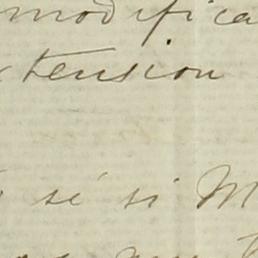 modifica
xtension
sé si M